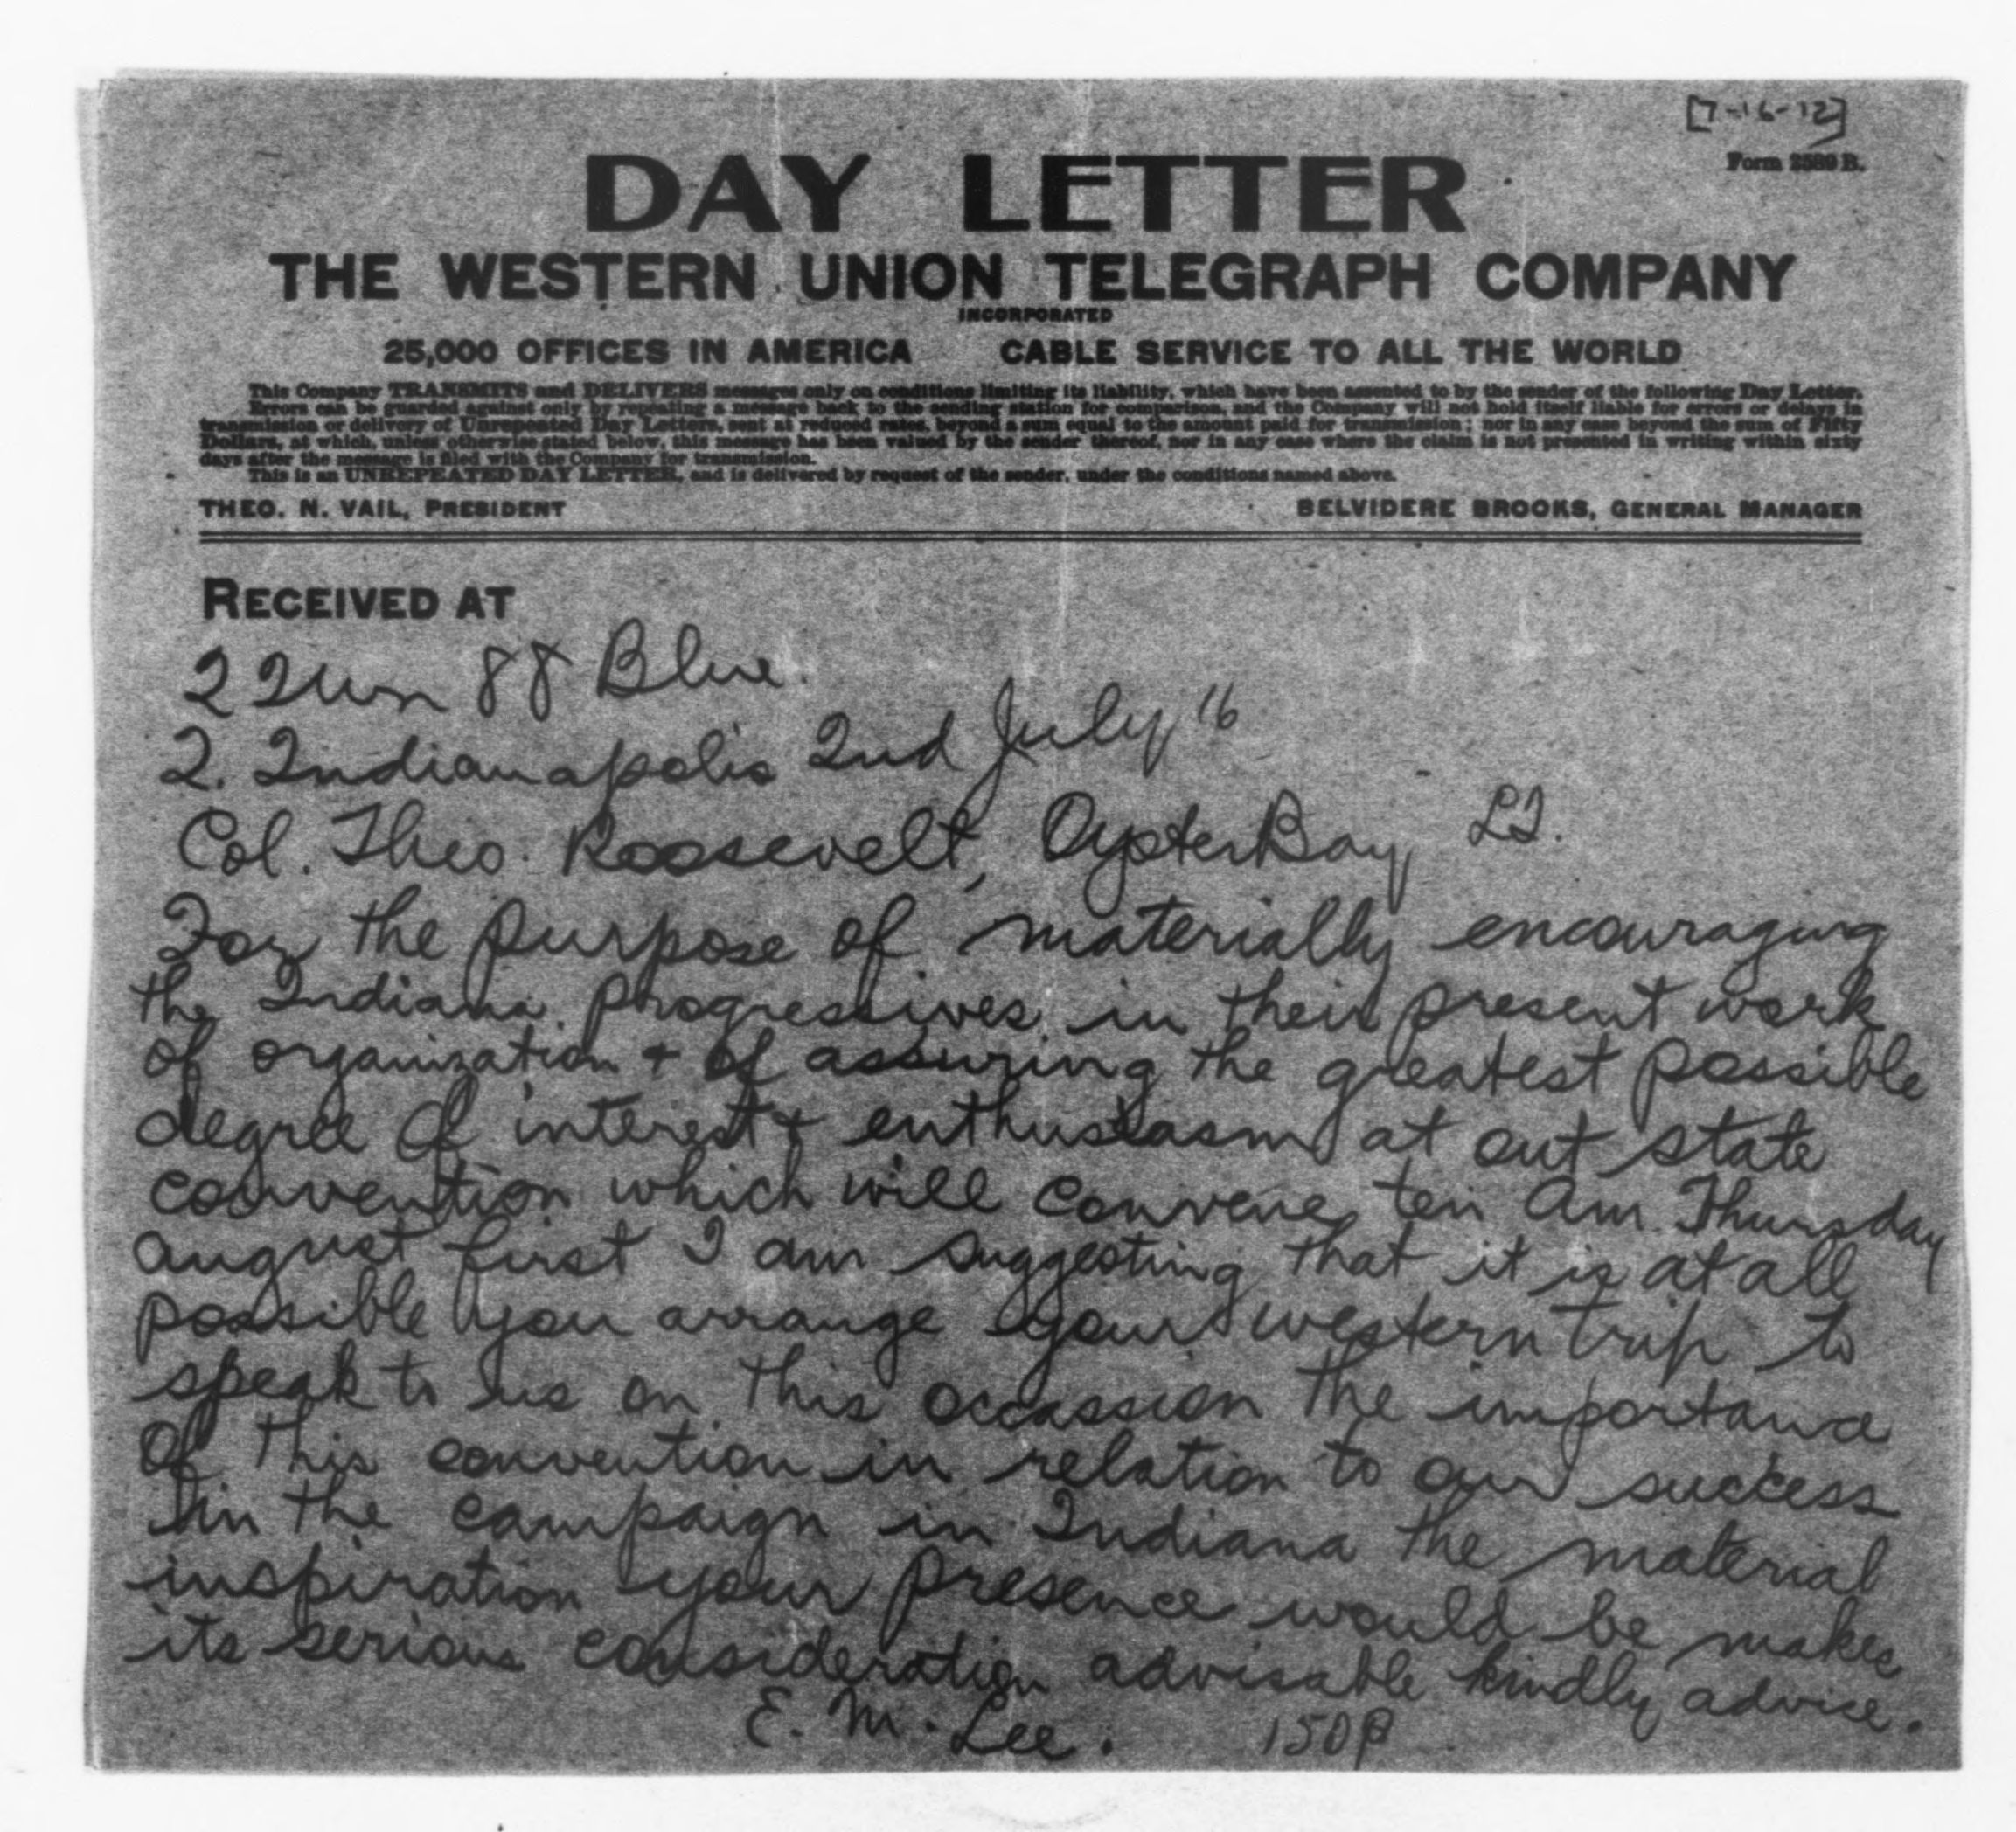 [7-16-12]
Form 2589 B.
DAY LETTER
THE WESTERN UNION TELEGRAPH COMPANY
INCORPORATED
25,000 OFFICES IN AMERICA CABLE SERVICE TO ALL THE WORLD
This Company TRANSMITS and DELIVERS messages only on conditions limiting its liability, which have been assented to by the sender of the following Day Letter.
Errors can be guarded against only by repeating a message back to the sending station for comparison, and the Company will not hold itself liable for errors or delays in
transmission or delivery of Unrepeated Day Letters, sent at reduced rates, beyond a sum equal to the amount paid for transmission; nor in any case beyond the sum of Fifty
Dollars, at which, unless otherwise stated below, this message has been valued by the sender thereof, nor in any case where the claim is not presented in writing within sixty
days after the message is filed with the Company for transmission.
This is an UNREPEATED DAY LETTER, and is delivered by request of the sender, under the conditions named above.
THEO. N. VAIL, PRESIDENT BELVIDERE BROOKS, GENERAL MANAGER
RECEIVED AT
88 Blue.
2. Indianapolis Ind July 16
Col. Theo. Roosevelt, Oyster Bay LI.
For the purpose of materially encouraging
the Indiana progressives in their present work
of organization + of assuring the greatest possible
degree of interest + enthusiasm at out state
convention which will convene ten am Thursday
august first I am suggesting that it is at all
possible you arrange your western trip to
speak to us on this occassion the importance
of this convention in relation to our success
in the campaign in Indiana the material
inspiration your presence would be makes
its serious consideration advisable kindly advise.
E. M. Lee. 150P